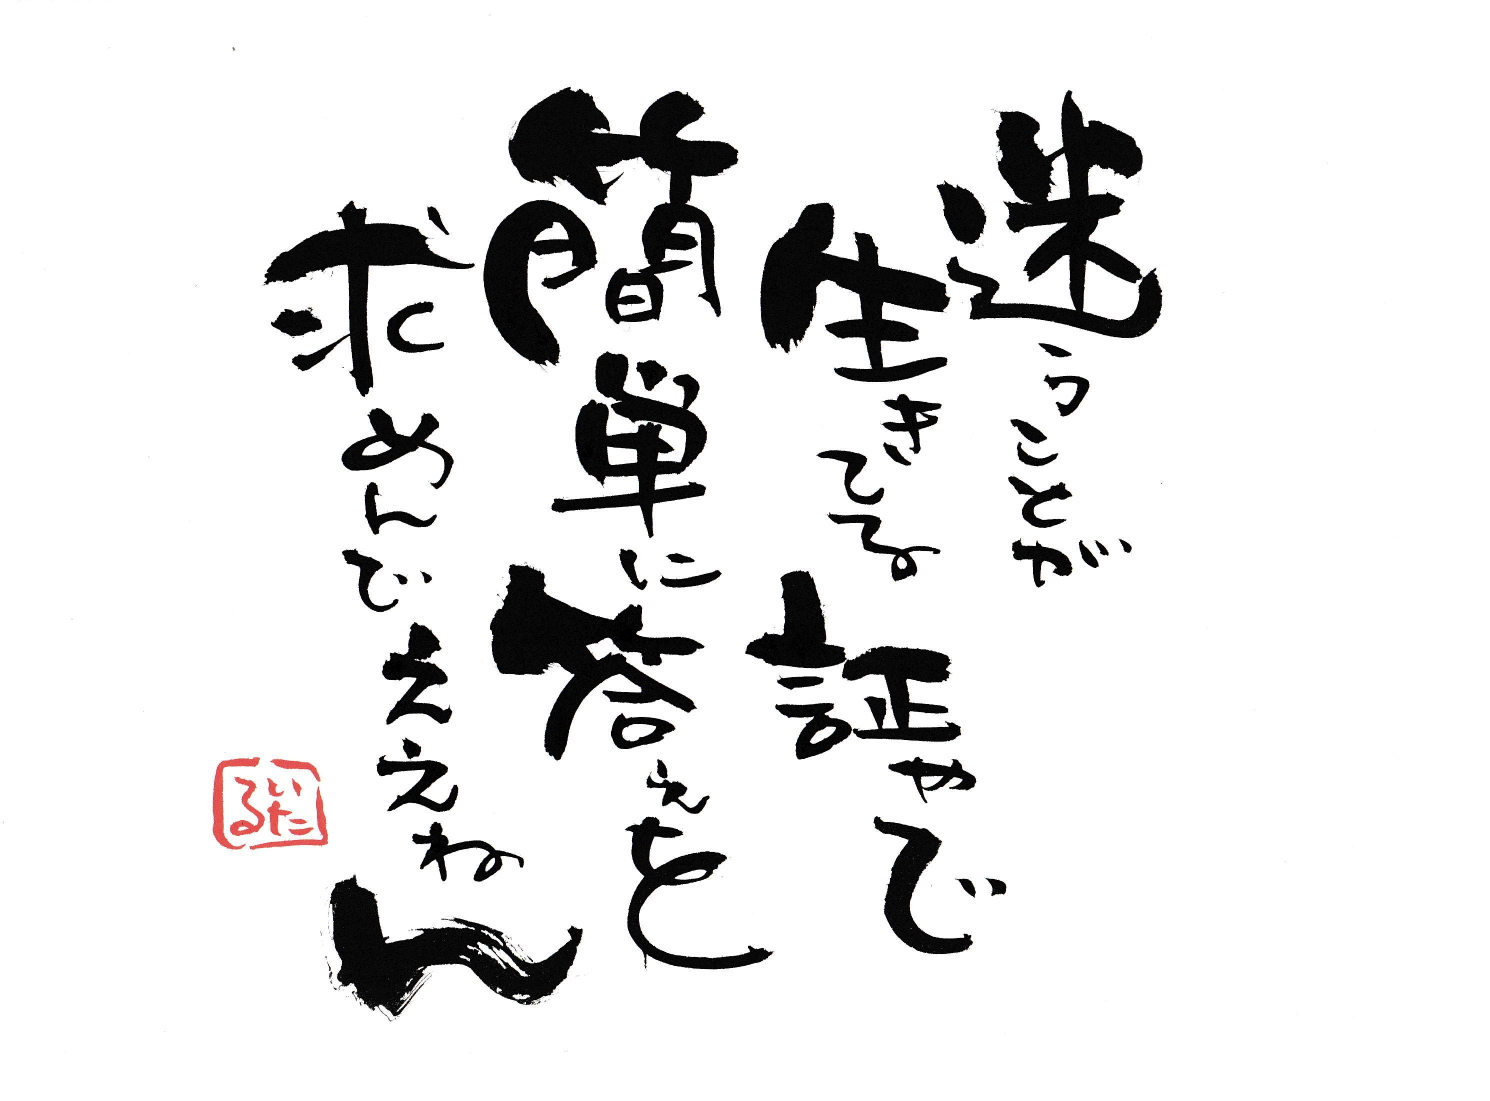 迷うことが
生きてる証やで
簡単に答えを
求めんでええねん
いたる